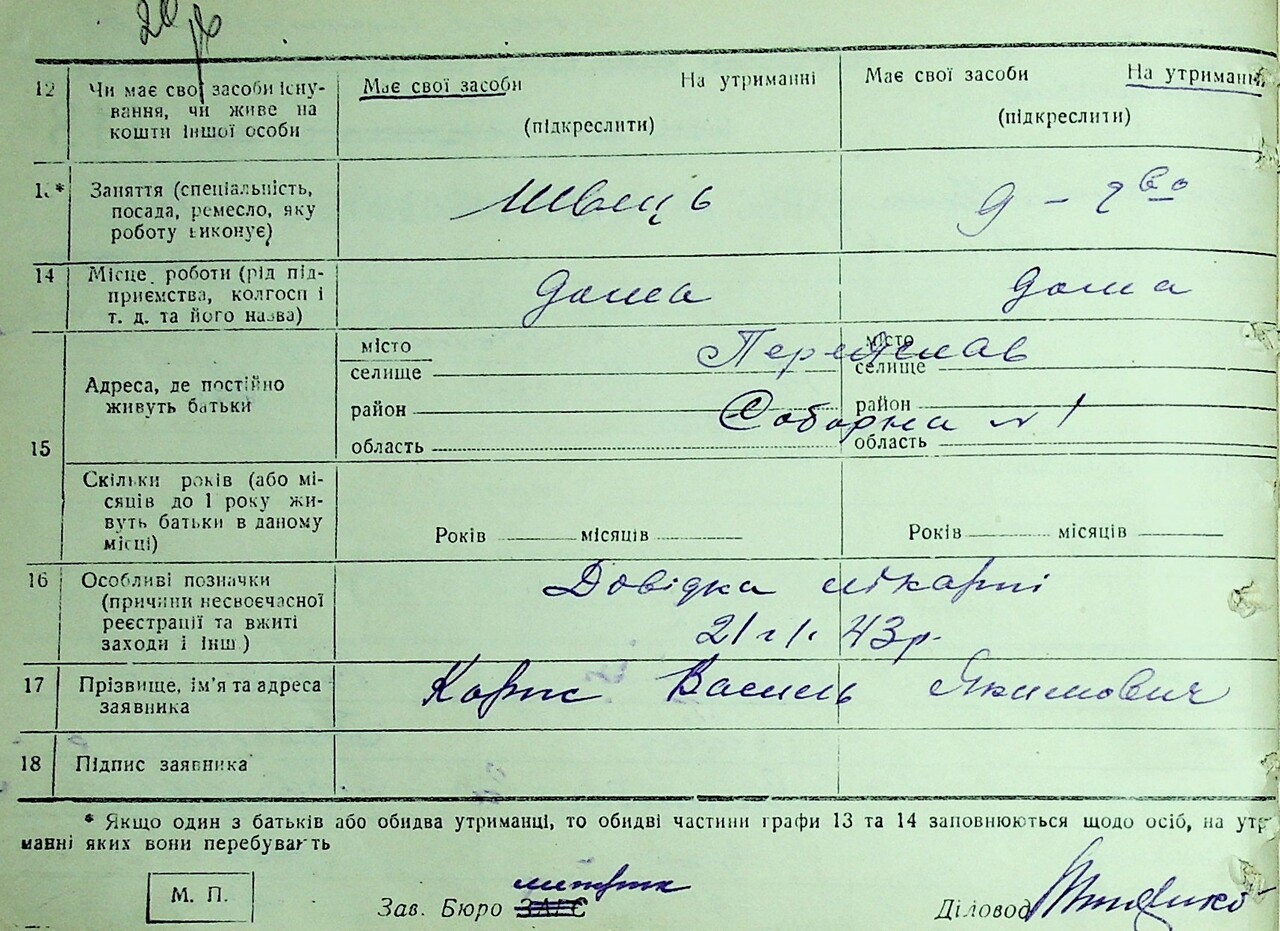 20
12 Чи має свої засоби існу- Має свої засоби На утриманні Має свої засоби На утриманні
вання, чи живе на
кошти іншої особи (підкреслити) (підкреслити)
13* Заняття (спеціальність, Швець д – гво
посада, ремесло, яку
роботу виконує)
14 Місце роботи (рід під- дома дома
приємства, колгосп і
т. д. та його назва)
місто Переяслав місто
селище селище
15 Адреса, де постійно
живуть батьки район Соборна № 1 район
область область
Скільки років (або мі-
сяців до 1 року жи-
вуть батьки в даному Років місяців Років місяців
місці)
16 Особливі позначки Довідка лікарні
(причини несвоєчасної
реєстрації та вжиті 21/I. 43 р.
заходи і інш.)
17 Прізвище, ім'я та адреса Василь Якимович
заявника
18 Підпис заявника
* Якщо один з батьків або обидва утриманці, то обидві частини графи 13 та 14 заповнюються щодо осіб, на утр
манні яких вони перебувають
М. П. Зав. Бюро ЗАГС метрик Діловод